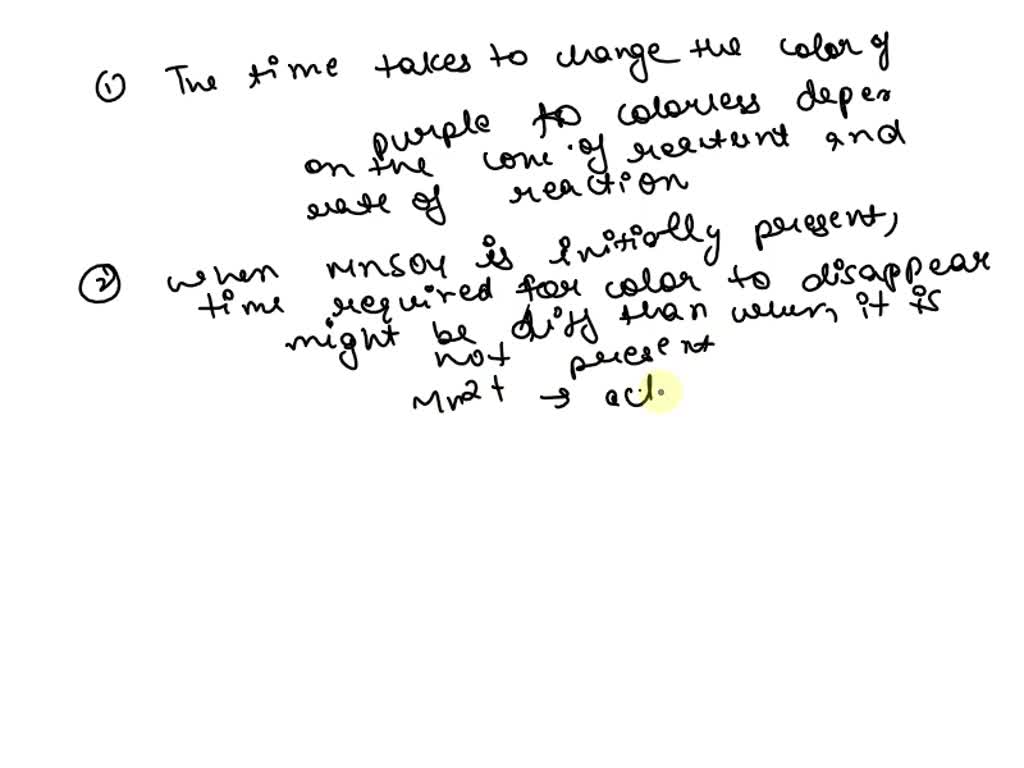 ① The time takes to change the color of
purple to colorless depen
on the conc. of reactant and
rate of reaction
② when MnSO4 is initially present,
time required for color to disappear
might be diff than when, it is
not present
Mn2+ → act